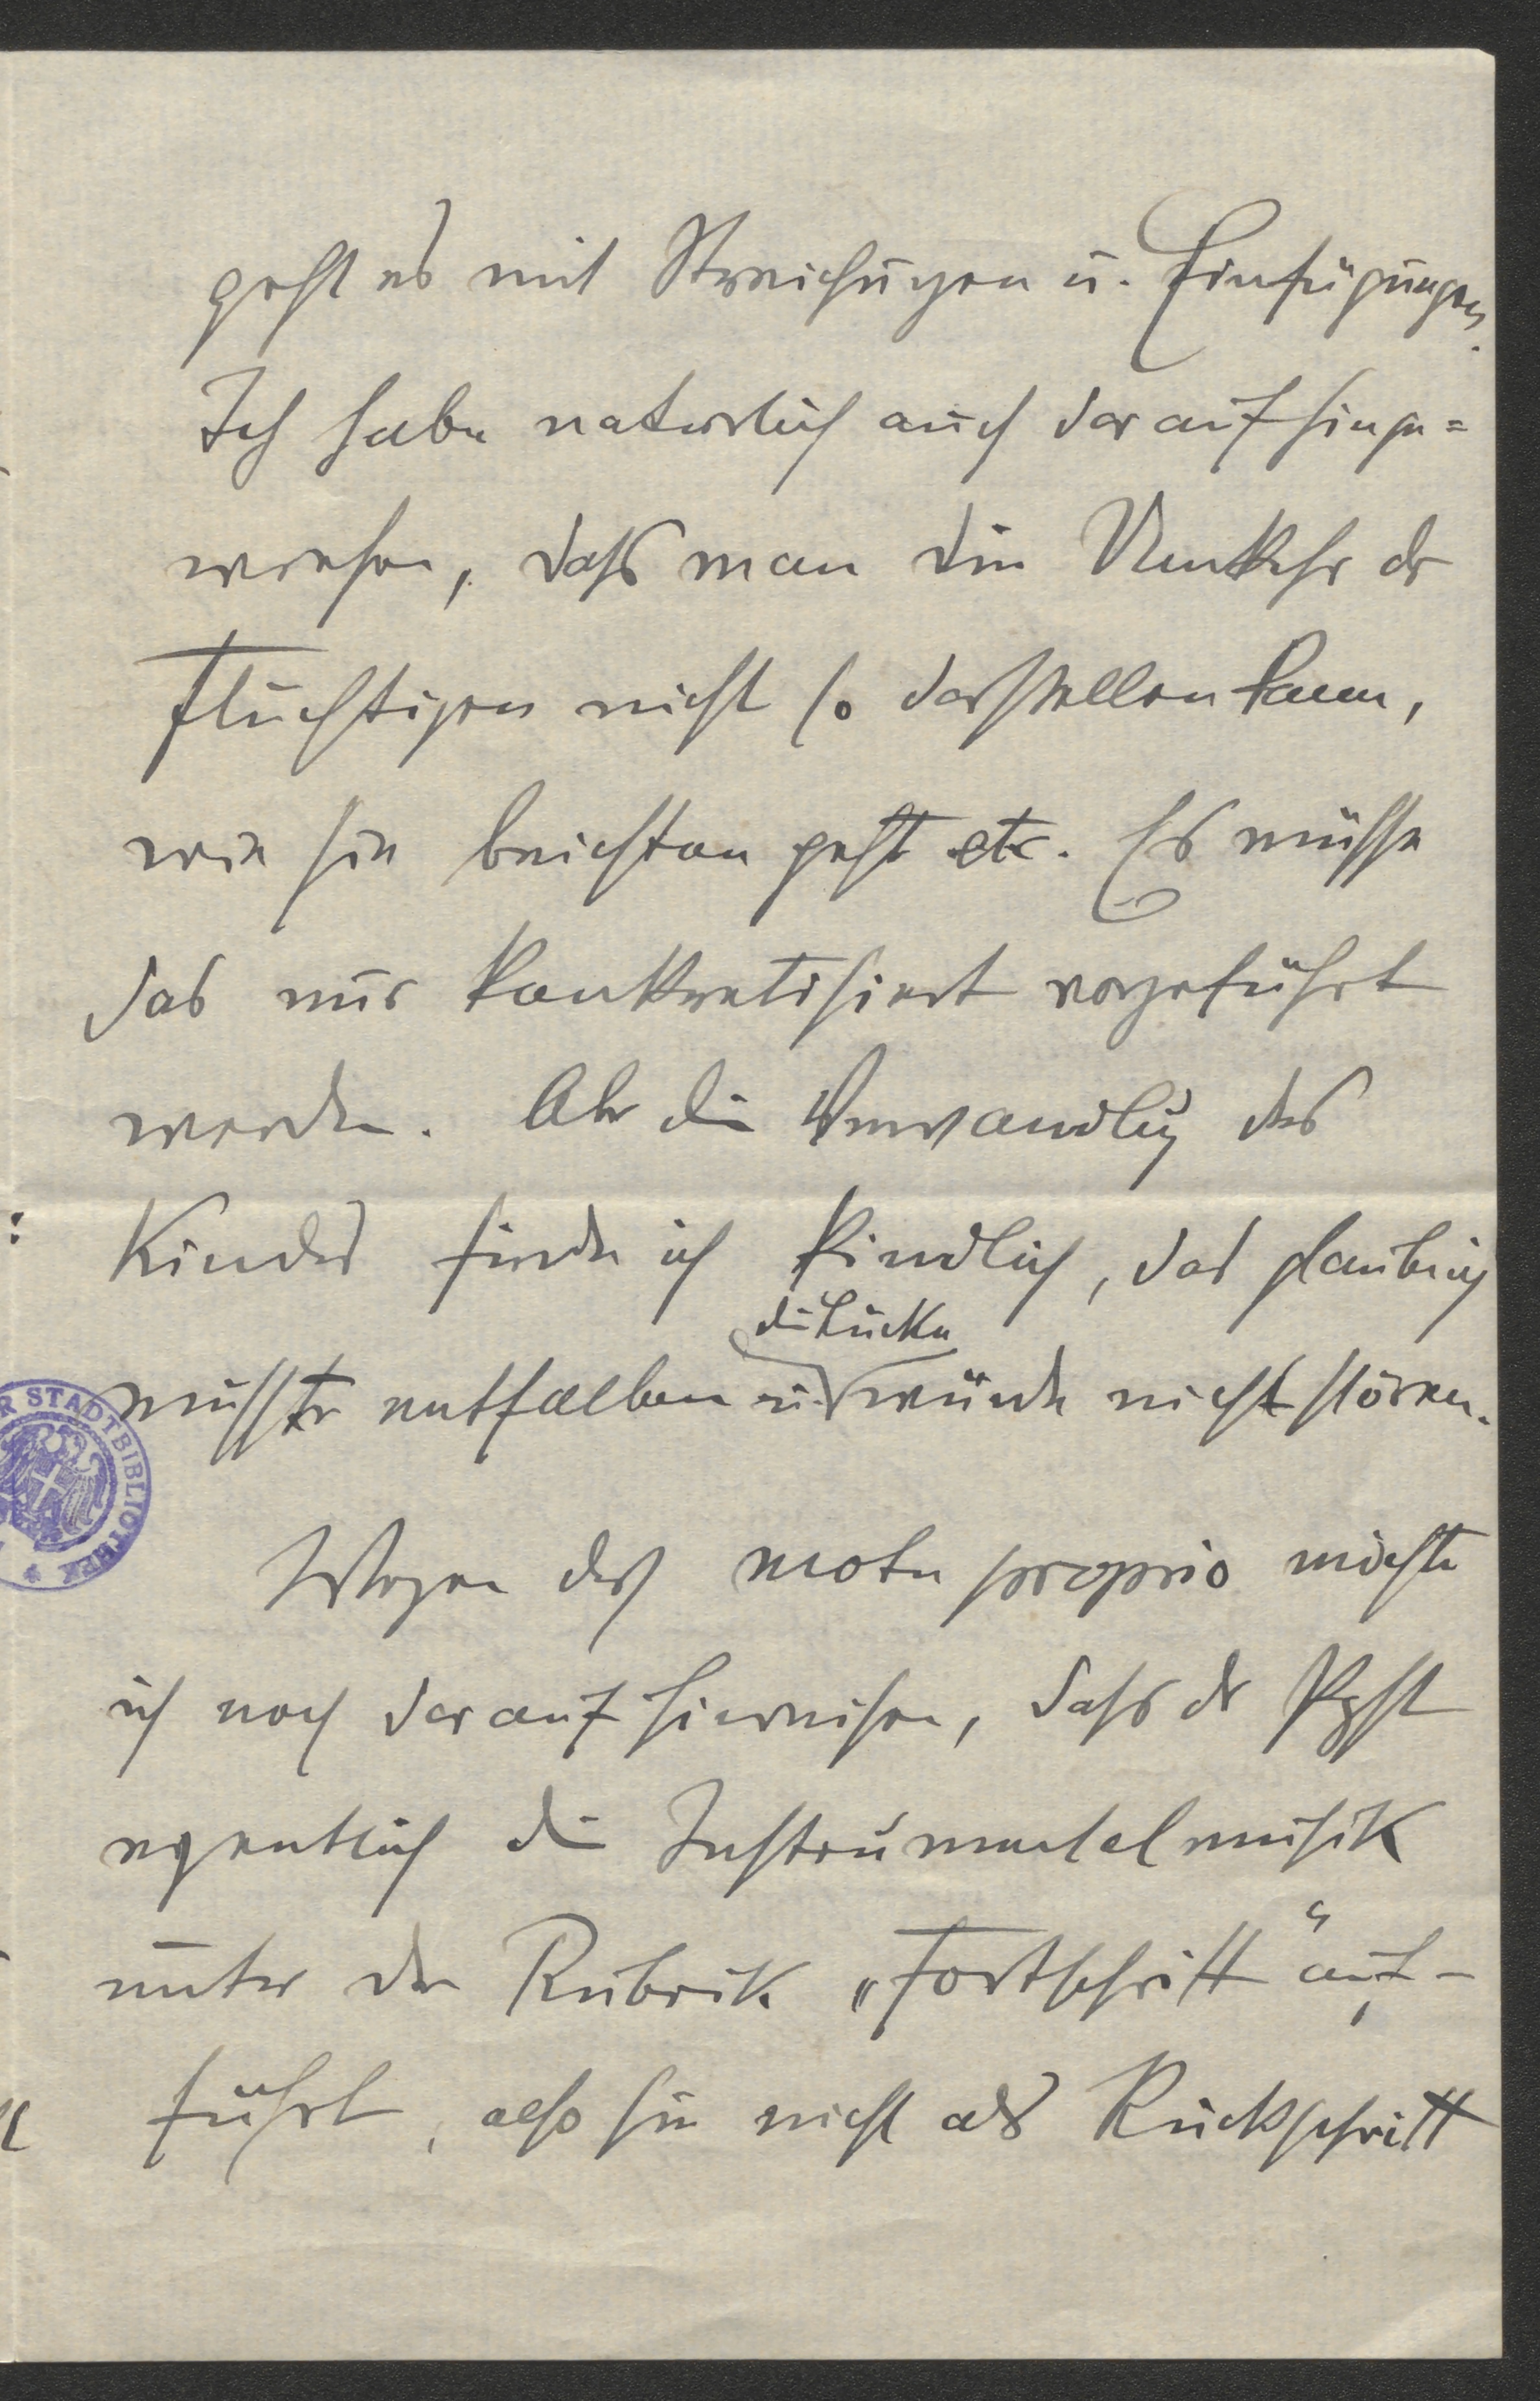 geht es mit Streichungen u. Einfügungen.
Ich habe naturlich auch darauf hinge=
wiesen, daß man die Umkehr der
Flüchtigen nicht so darstellen kann,
wie sie beichten geht etc. Es müsse
das nur konkretisiert vorgeführt
werden. Aber die Umwandlug des
Kindes finde ich kindlich, das glaub ich
müsste entfallen u. die Lücke würde nicht stören.
Wegen des motu proprio möchte
ich noch darauf hinweisen, daß der Papst
eigentlich die Instrumentalmusik
unter der Rubrik „Fortschritt" auf-
führt, also sie nicht als Rückschritt
R STADTBIBLIOTHEK *